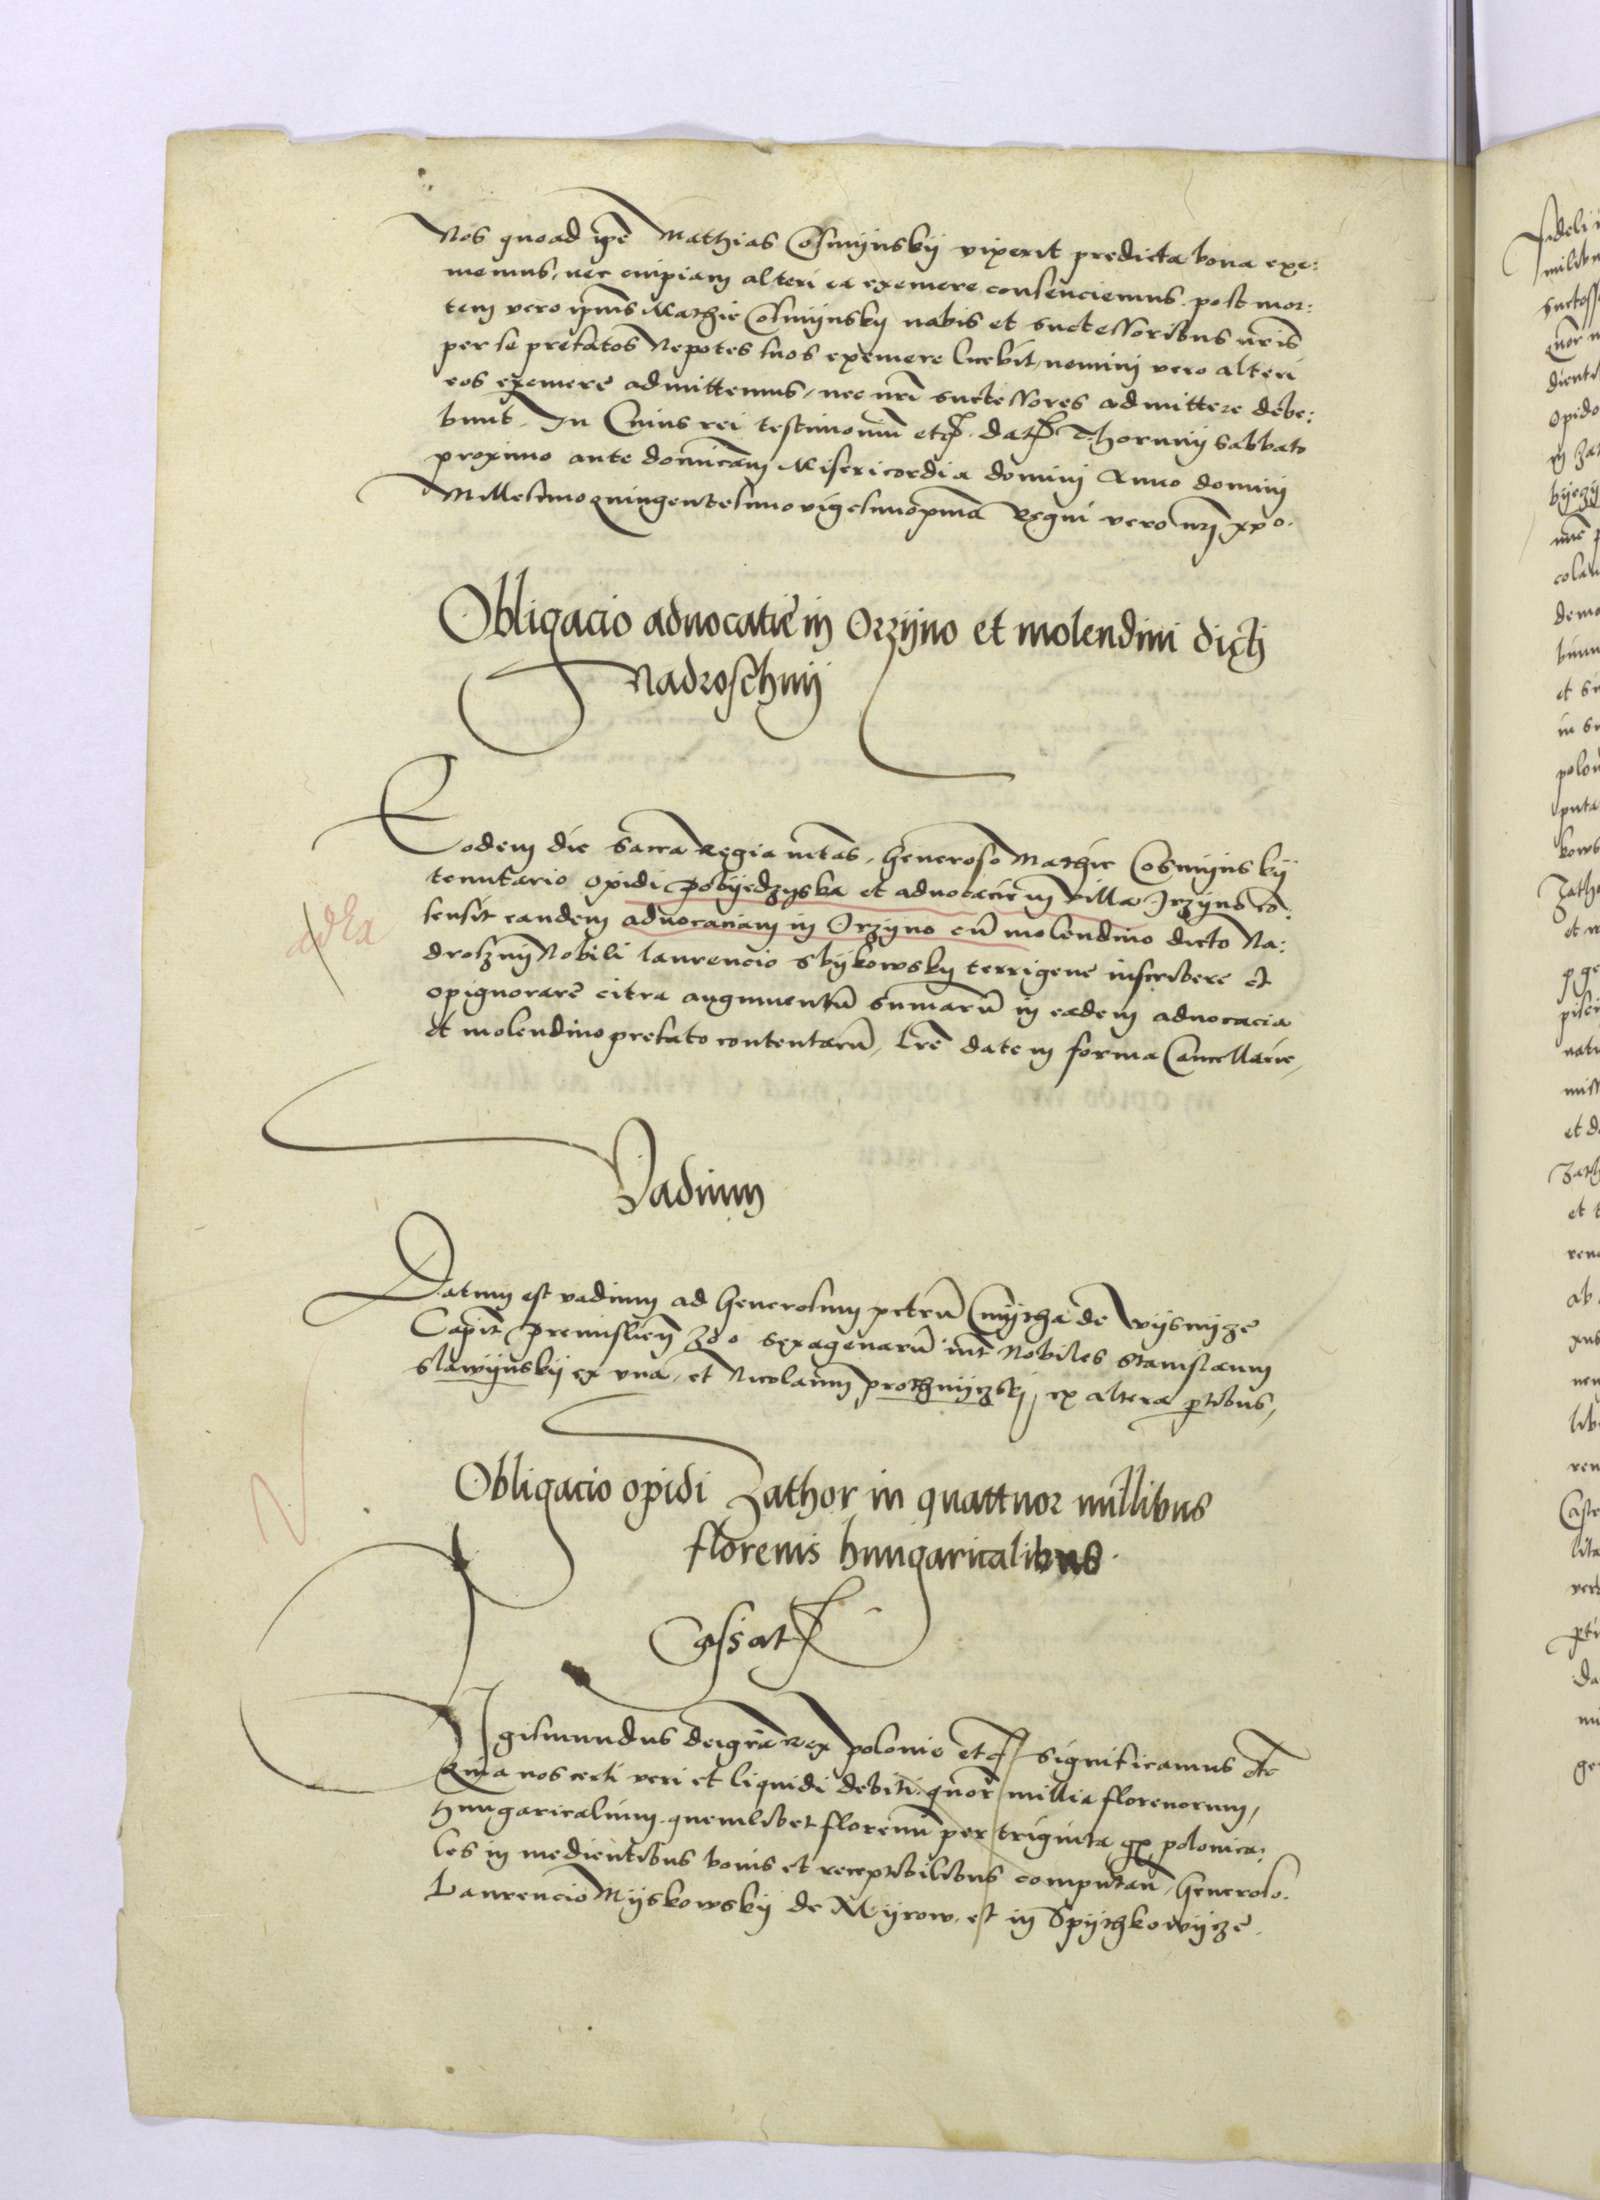 Nos quoad ipe Mathias Cosmijnskij vixerit predicta bona exe:
memus, nec cuipiam alteri ea exemere consenciemus. post mor:
tem vero ipius Mathie Cosmijnskij nobis et successoribus nris
per se prefatos Nepotes suos exemere licebit, nemini vero alteri
eos exemere admittemus, nec nri successores admittere debe:
bunt. In Cuius rei testimonium etc. dat Thorunij sabbato
proximo ante dominicam Misericordia domini Anno domini
Millesimo quingentesimo vigesimo pmo Regni vero nri xv o.
Obligacio advocatie in Orzijno et molendini dicti
Nadroschnij
Eodem die Sacra Regia mtas, Generoso Mathie Cosmijnskij
tenutario opidi Pobijedzyska et advocacie in villa Jrzyno co:
sensit eandem advocaciam in Orzyno cum molendino dicto Na:
droschnij Nobili laurencio Sbijkowsky terrigene inscribere et
opignorare citra augmentum sumarum in eadem advocacia
et molendino prefato contentarum, Lre date in forma Cancellarie,
Vadium
Datum est vadium ad Generosum petrum Cmijtha de Wijsnijcze
Capit Premislien 200 sexagenarum int Nobiles Stanislaum
Slawijnskij ex una, et Nicolaum Prothnijczskj, ex altera ptibus,
Obligacio opidi Zathor in quattuor millibus
florenis hungaricalibus.
Cassat
Sigismundus dei gra Rex polonie etc significamus etc
Quia nos certi veri et liquidi debiti quor millia florenorum,
hungaricalium quemlibet florenum per triginta gr polonica:
les in medientibus bonis et receptibilibus computan, Generoso
Laurencio Mijskowskij de Mijrow, et in Spijthkowijcze